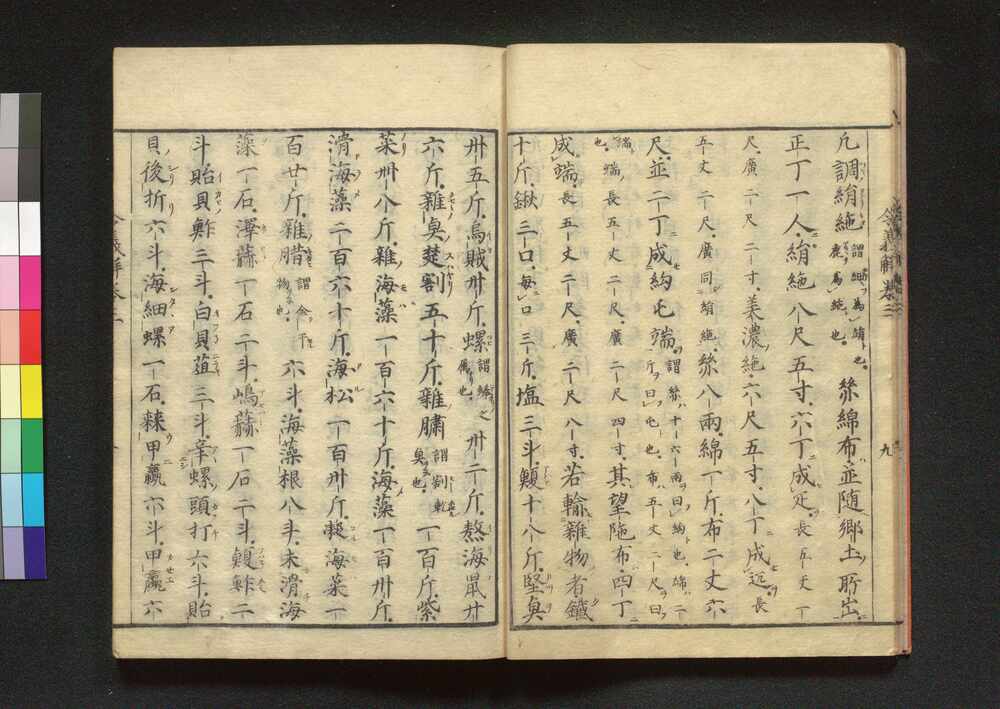 凡調絹絁謂細為絹也麁為絁也絲綿布並随郷土所出
正丁一人絹絁八尺五寸六丁成疋長五丈一
尺廣二尺二寸美濃絁六尺五寸八丁成疋長
五丈二尺廣同絹絁絲八兩綿一斤布二丈六
尺並二丁成絇屯端謂絲十六兩曰絇也綿二斤曰屯也布五丈二尺曰
端也端長五丈二尺廣二尺四寸其望陁布四丁
成端長五丈二尺廣二尺八寸若輸雜物者鐵
十斤鍬三口毎口三斤塩三斗鰒十八斤堅魚
卅五斤烏賊卅斤螺謂螺之属也卅二斤熬海鼠廿
六斤雜魚楚割五十斤雜腊一百斤紫
菜卌八斤雜海藻一百六十斤海藻一百卅斤
滑海藻二百六十斤海松一百卅斤凝海菜一
百廿斤雜腊六斗海藻根八斗未滑海
藻一石澤蒜一石二斗嶋蒜一石二斗鰒鮓二
斗貽貝鮓三斗白貝葅三斗辛螺頭打六斗貽
貝後折六斗海細螺一石棘甲蠃六斗甲蠃六
九